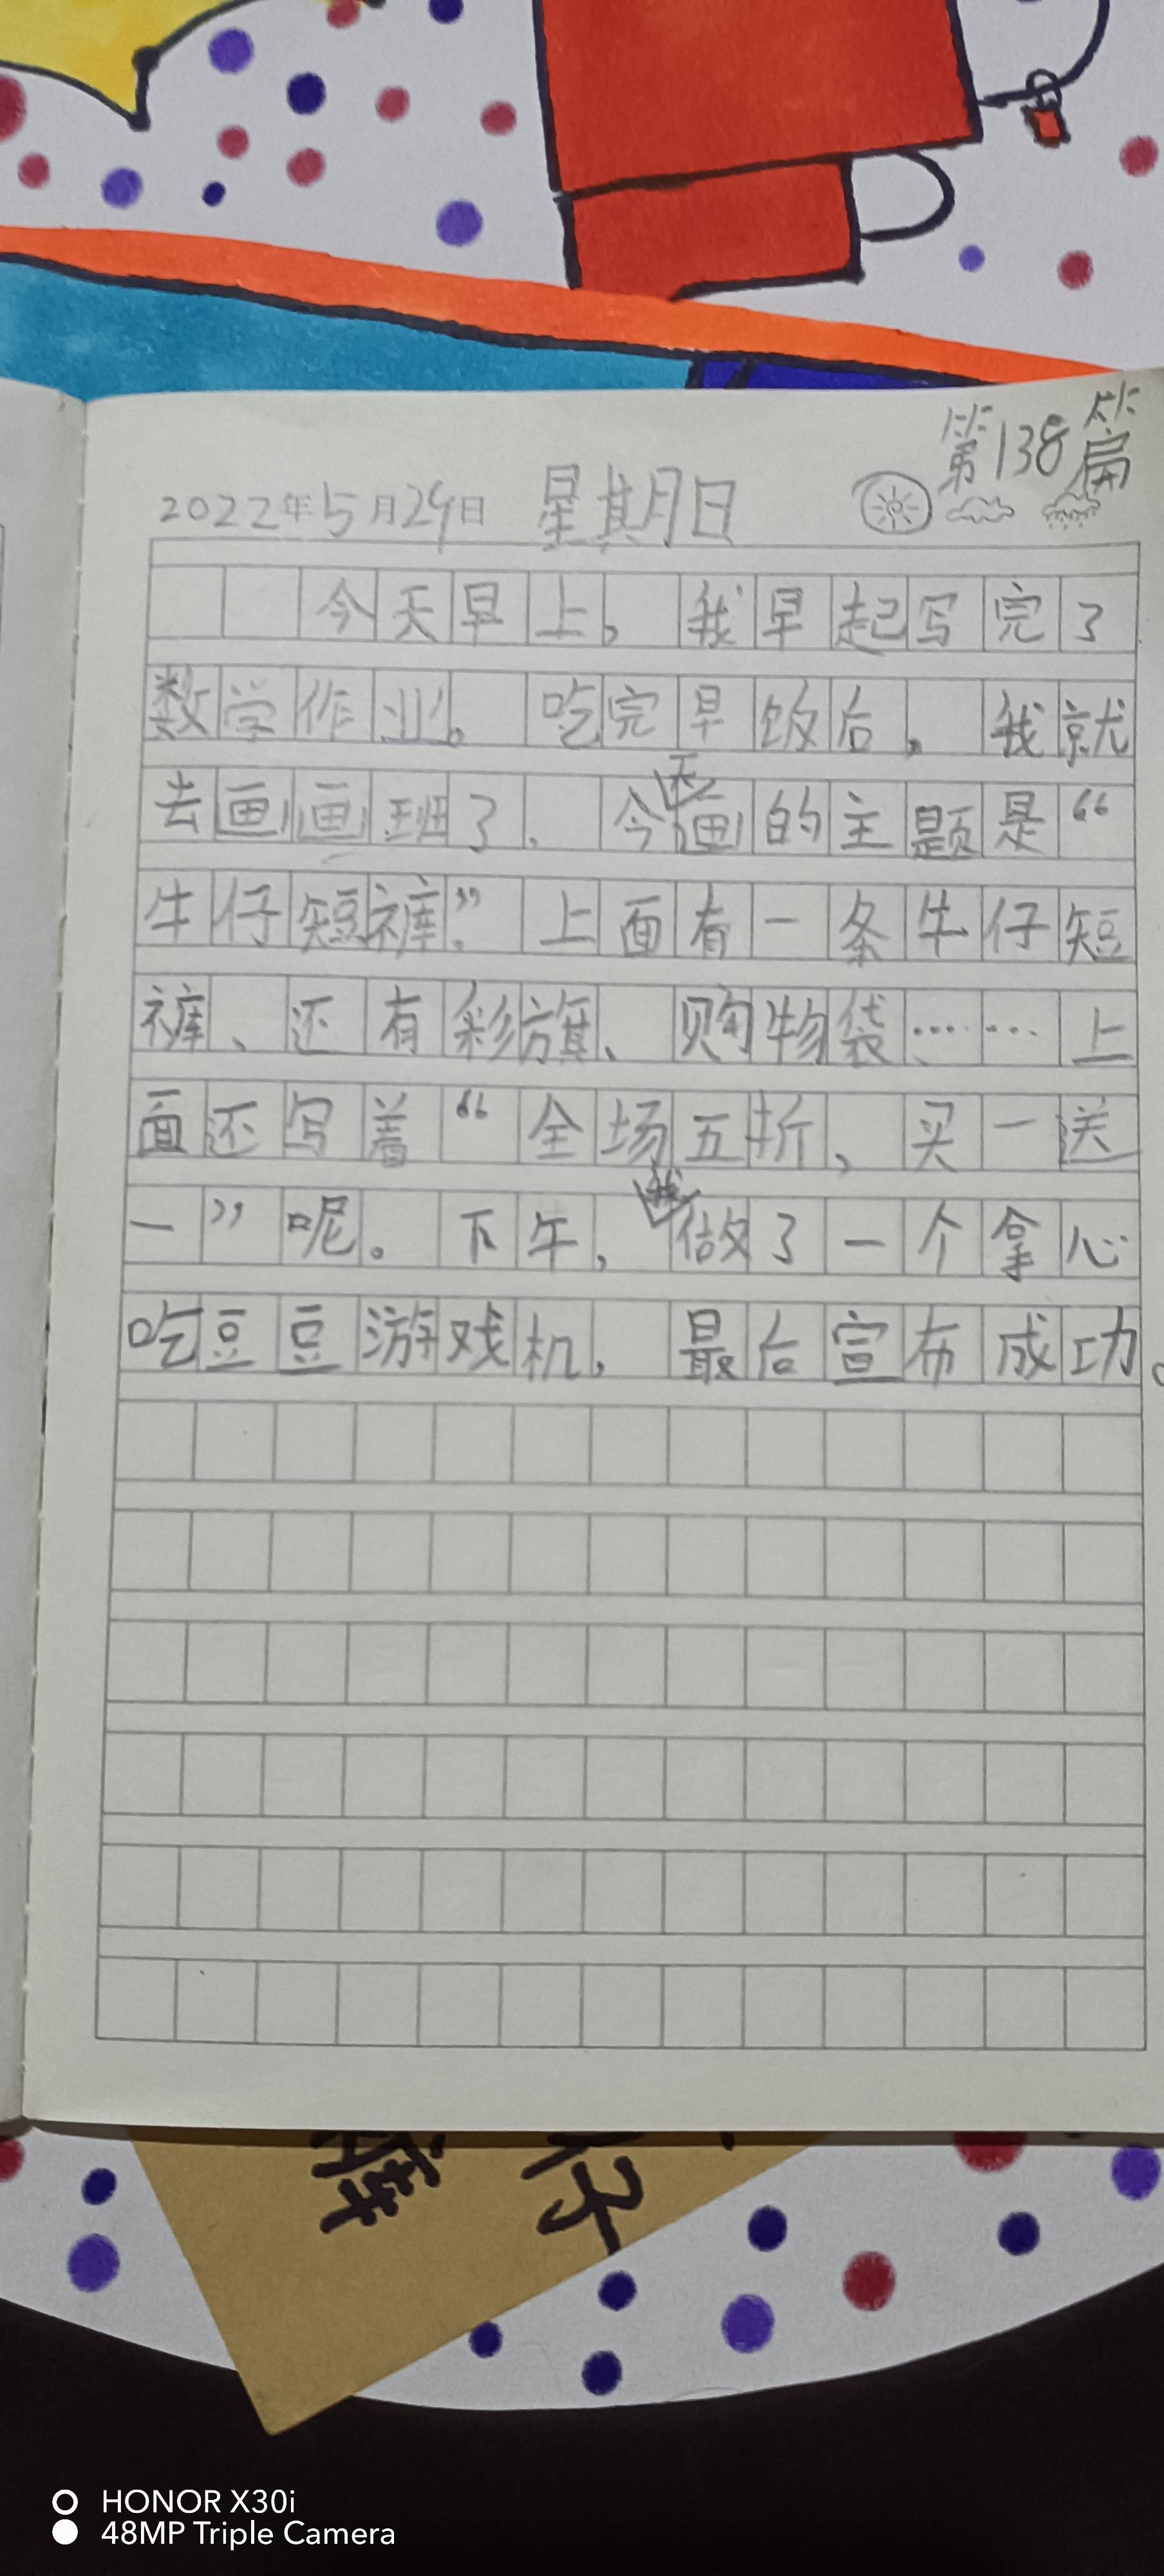 第138篇
2022年5月29日 星期日
今天早上,我早起写完了
数学作业。吃完早饭后,我就
去画画班了.今天画的主题是“
牛仔短裤”.上面有一条牛仔短
裤、还有彩旗、购物袋……上
面还写着“全场五折,买一送
一”呢。下午,我做了一个拿心
吃豆豆游戏机,最后宣布成功。
仔
裤
HONOR X30i
48MP Triple Camera